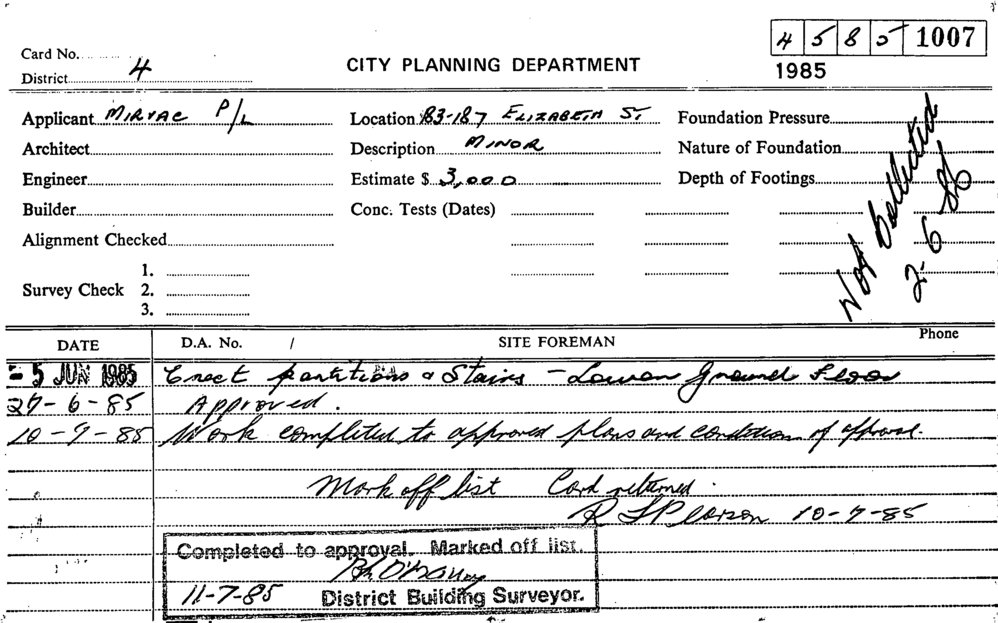 4 5 8 5 1007
Card No.
CITY PLANNING DEPARTMENT
1985
District 4
Applicant MIRVAC P/L Location 183-187 ELIZABETH ST Foundation Pressure
Architect Description MINOR Nature of Foundation
Engineer Estimate $ 3,000 Depth of Footings
Builder Conc. Tests (Dates)
Not Collected
2-6
Alignment Checked
1.
Survey Check 2.
3.
DATE D.A. No. / SITE FOREMAN Phone
- 5 JUN 1985 Erect partitions & Stairs - Lower Ground Floor
27-6-85 Approved.
10-7-85 Work completed to approved plans and condition of approval.
Mark off list Card returned.
R J Pearson 10-7-85
Completed to approval. Marked off list.
11-7-85 District Building Surveyor.